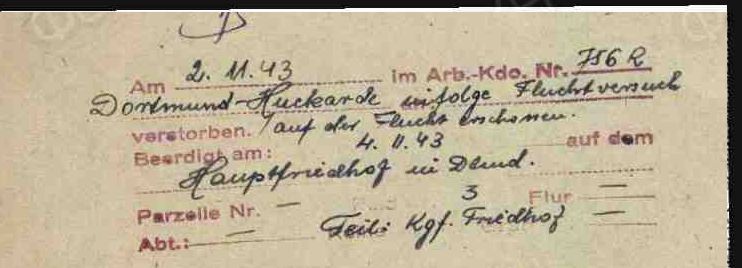 Am 2.11.43 im Arb.-Kdo. Nr. 756 R
Dortmund-Huckarde infolge Fluchtversuch
verstorben. / auf der Flucht erschossen.
Beerdigt am: 4.11.43 auf dem
Hauptfriedhof in Dtmd.
Parzelle Nr. — 3 Flur —
Abt.: — Teil: Kgf. Friedhof —